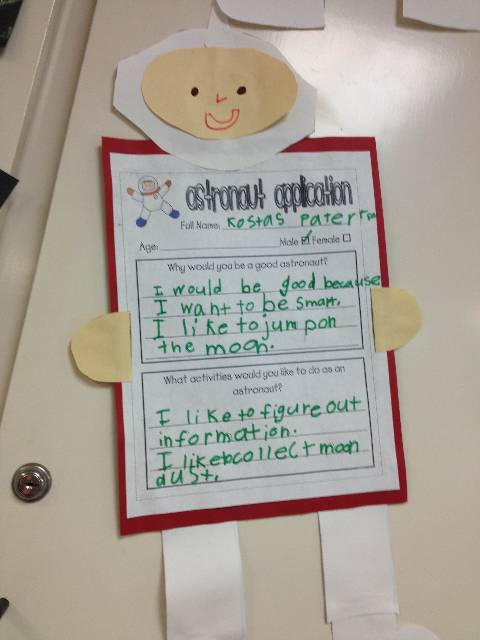 astronaut application
Full Name: Kostas
Age: Male Female
Why would you be a good astronaut?
I would be good because
I want to be smart.
I like to jump on
the moon.
What activities would you like to do as an
astronaut?
I like to figure out
information.
I like to collect moon
dust.